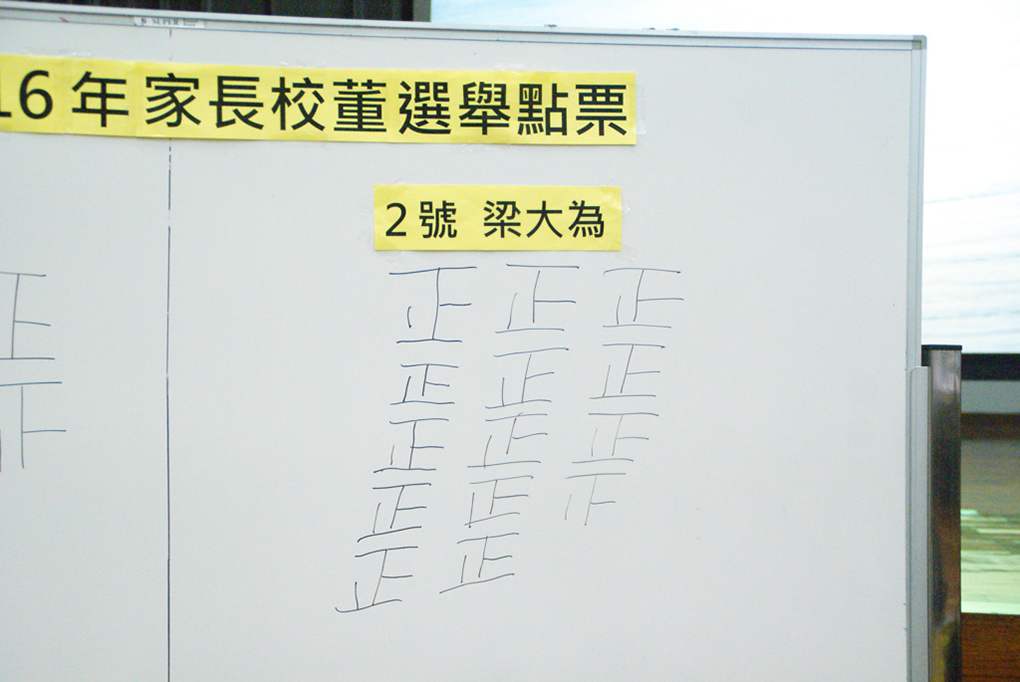 SUPER
16年家長校董選舉點票
2號 梁大為
正 正 正
正 正 正
正 正 正
正 正
正 正